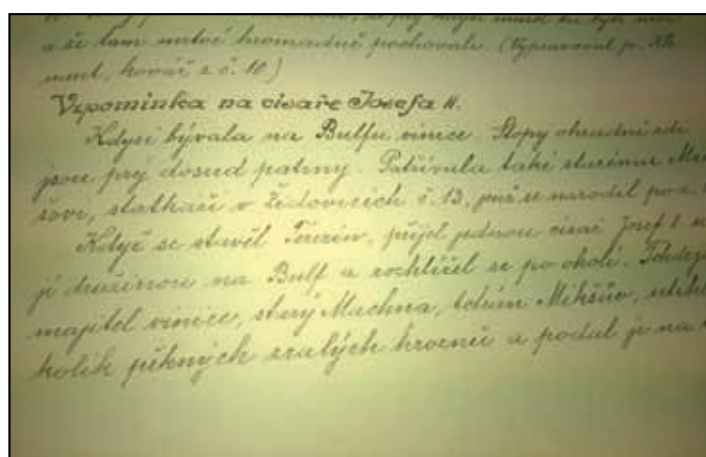 a že tam mrtvé hromadně pochovali. (Vypravoval p. Kli
ment, kovář z č. 10)
Vzpomínka na císaře Josefa II.
Kdysi bývala na Bulfu vinice. Stopy ohradní zdi
jsou prý dosud patrny. Patřívala také starému Mik
šovi, statkáři v Židovicích č. 13,
Když se stavěl Terezín, přijel jednou císař Josef II. se
jí družinou na Bulf a rozhlížel se po okolí. Tehdejší
majitel vinice, starý Machna, tchán Mikšův, utrhl
kolik pěkných zralých hroznů a podal je na